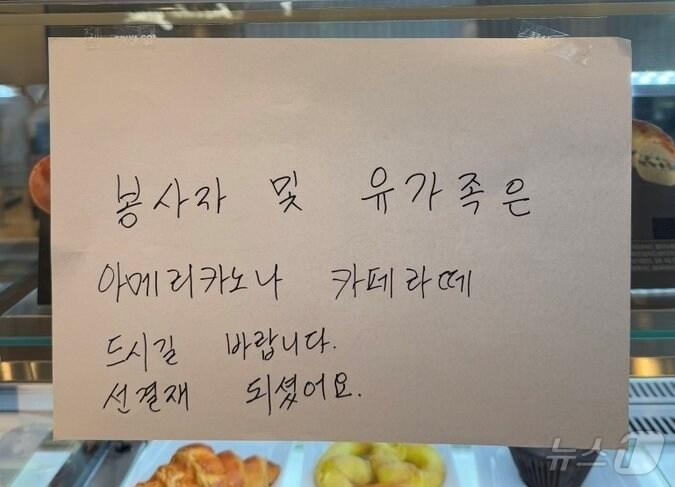 봉사자 및 유가족은
아메리카노나 카페라떼
드시길 바랍니다.
선결재 되셨어요.
뉴스1